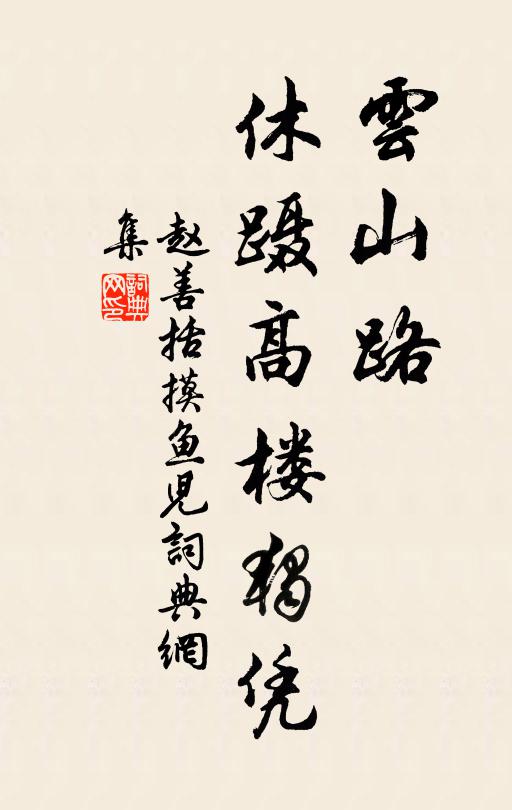 雲山路
休蹑高楼独凭
赵善括摸鱼児詞典網
集
詞典
网印